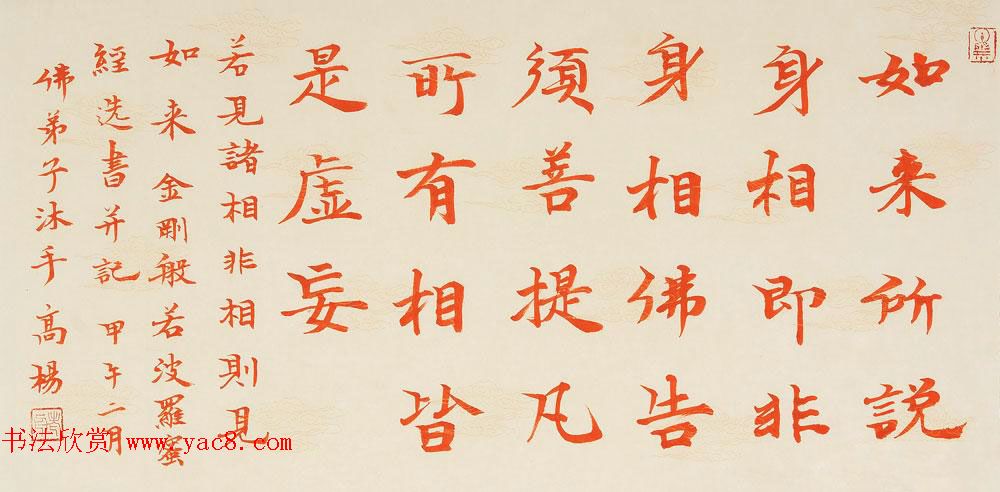 如来所說
身相即非
身相佛告
須善提凡
所有相皆
是虛妄
若見諸相非相則見
如来金剛般若波羅蜜
經选書并記甲午二月
佛弟子沐手高楊
书法欣赏 www.yac8.com